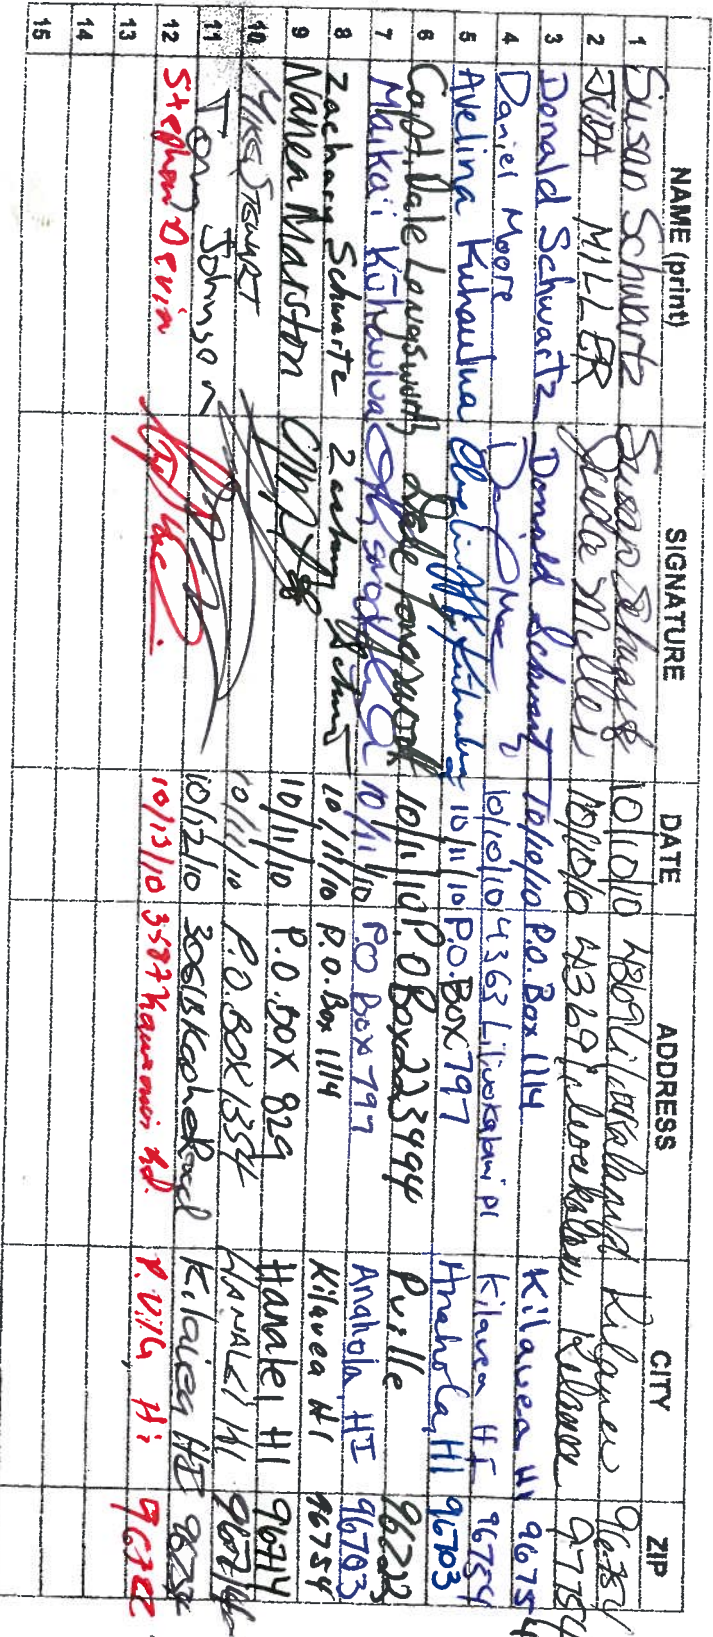 NAME (print) SIGNATURE DATE ADDRESS CITY ZIP
1 Susan Schwartz Susan Schwartz 10/10/10 4369 Kilauea 96754
2 JUDA MILLER Juda Miller 10/10/10 4369 Kilauea 97754
3 Donald Schwartz Donald Schwartz 10/10/10 P.O. Box 1114 Kilauea HI 96754
4 Daniel Moore 10/10/10 4363 Liliuokalani Pl Kilauea HI 96754
5 Avelina Kuhaulua 10/11/10 P.O. Box 797 Anahola, HI 96703
6 Capt. Dale Longsworth Dale Longsworth 10/11/10 P.O Box 223494 Pville 96722
7 Maika'i Kūhaulua 10/11/10 P.O Box 797 Anahola, HI 96703
8 Zachary Schwartz Zachary Schwartz 10/11/10 P.O. Box 1114 Kilauea HI 96754
9 Nanea Marston 10/11/10 P.O. BOX 829 Hanalei HI 96714
10 MIKE STEWART 10/11/10 P.O. BOX 1354 HANALEI HI 96714
11 Johnson 10/12/10 Road Kilauea HI 96754
12 Stephen Devin 10/13/10 3587 Rd. P.Ville Hi
13
14
15